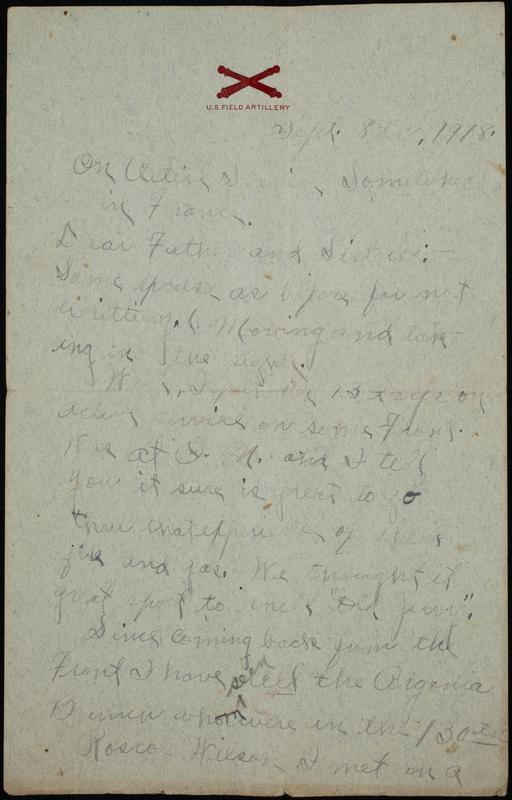 U.S. FIELD ARTILLERY
Sept. 8th, 1918.
On Active Service, Somewhere
in France.
Dear Father and Sister:—
Same excuse as before for not
writting. (Moving and tak-
ing in the sights.
Well, I spent 13 days on
active service on some Front.
Was at St. M. and I tell
you it sure is great to go
thru that experience of shell
fire and gas. We thought it
great sport to shell "Old Jerry".
Since coming back from the
Front I have seen the Argonia
Kansas men who were in the 130th
Rosco Wilson I met in a